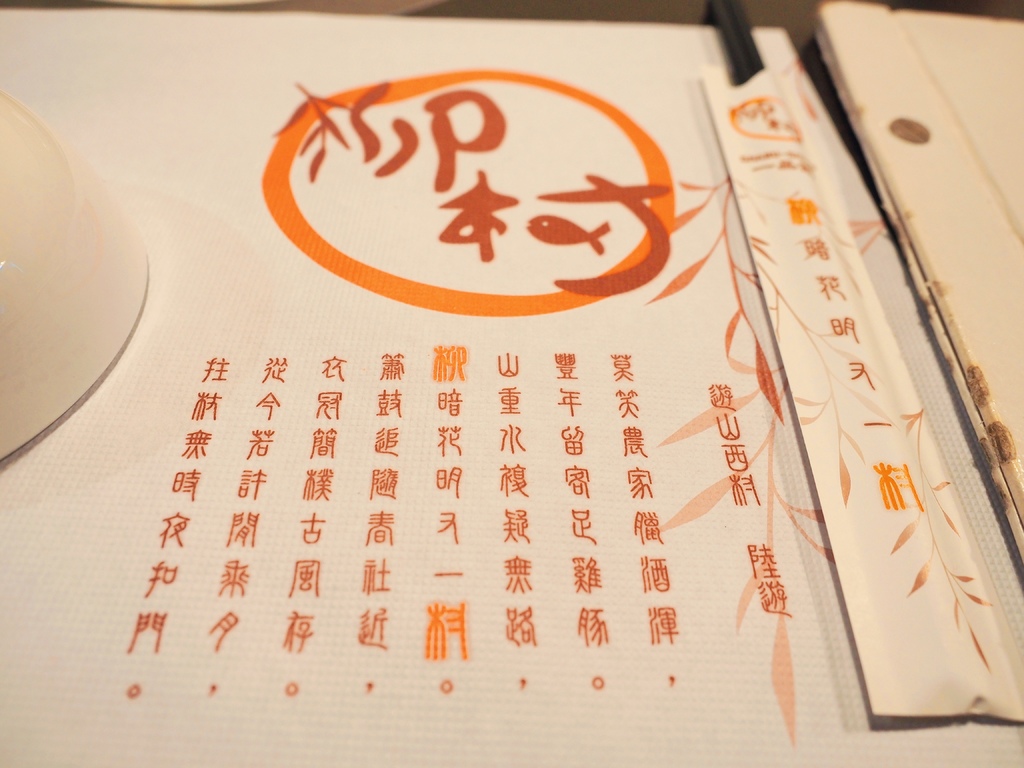 柳村
遊山西村 陸遊
莫笑農家臘酒渾，
豐年留客足雞豚。
山重水複疑無路，
柳暗花明又一村。
簫鼓追隨春社近，
衣冠簡樸古風存。
從今若許閒乘月，
拄杖無時夜扣門。
柳村
柳暗花明又一村